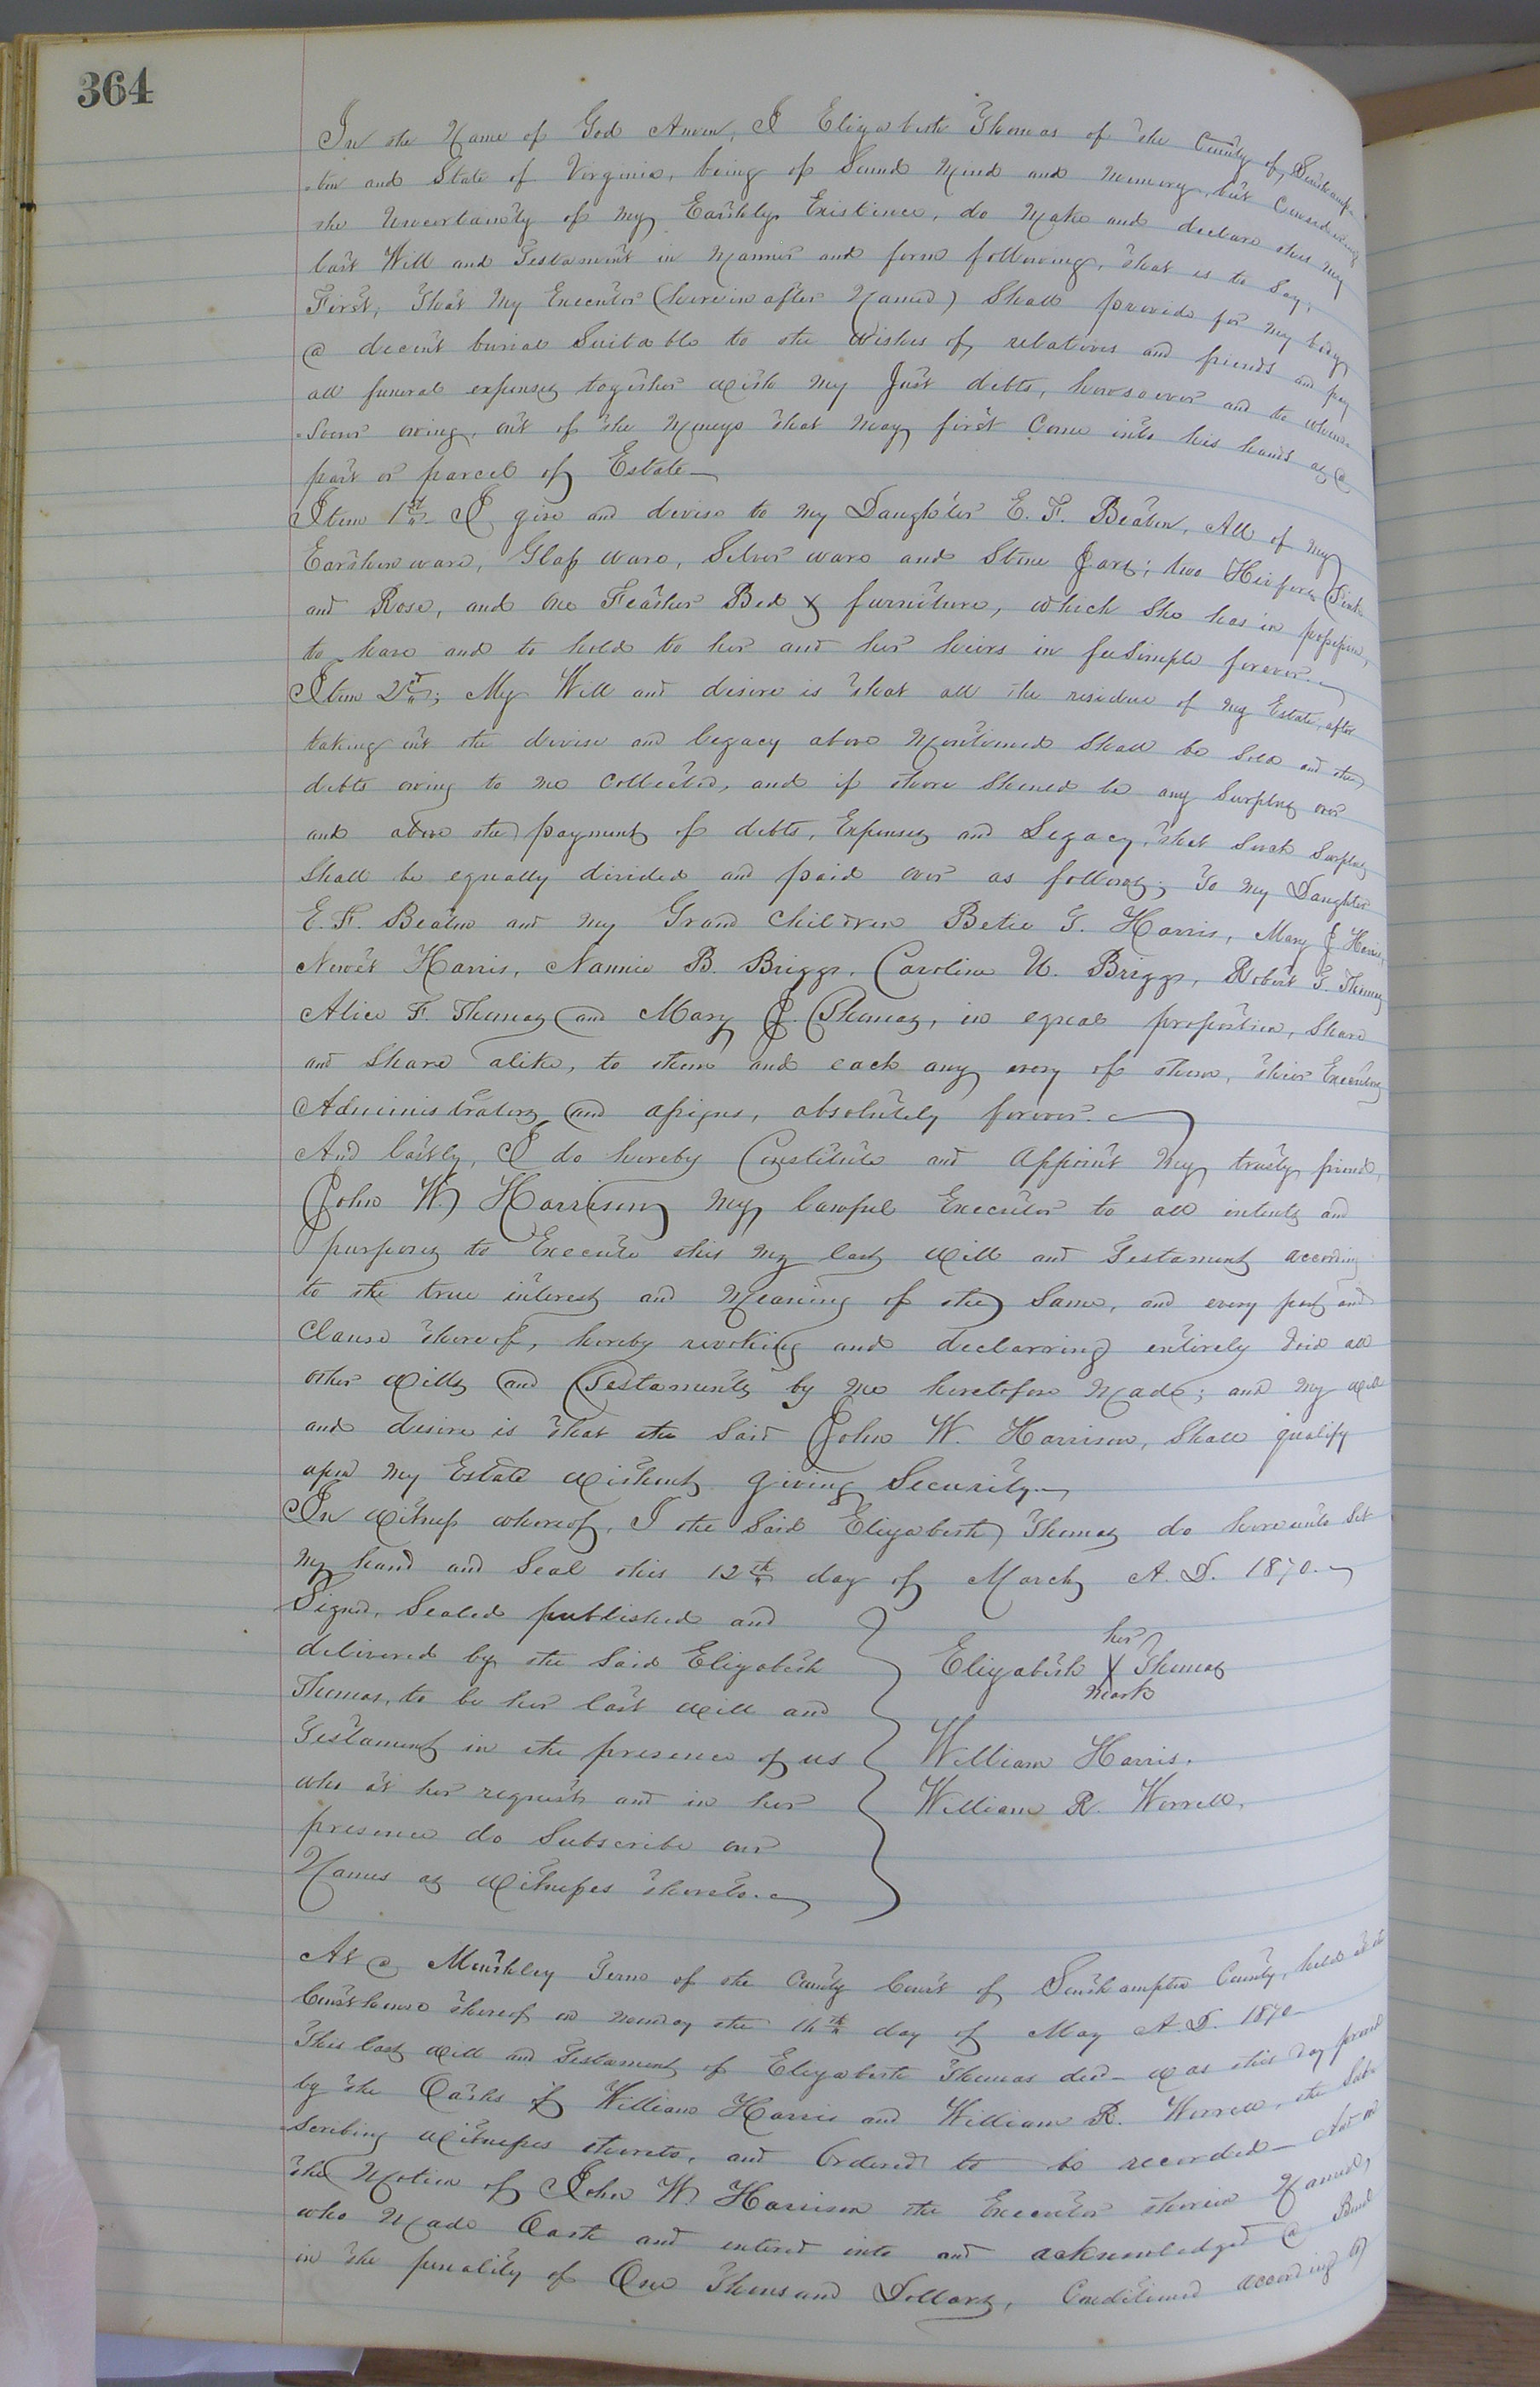 364
In the Name of God Amen, I Elizabeth Thomas of the County of Southamp-
-ton and State of Virginia, being of Sound Mind and Memory, but Considering
the Uncertainty of My Earthly Existence, do Make and declare this My
last Will and Testament in Manner and form following, that is to Say;
First, That My Executor (hereinafter Named) Shall provide for My body
a decent burial Suitable to the Wishes of relatives and friends and pay
all funeral expenses together with My Just debts, howsoever and to whom-
-soever owing, out of the Moneys that May first Come into his hands as a
part or parcel of Estate
Item 1st I give and devise to My Daughter E. F. Beaton, All of My
Earthenware, Glass ware, Silver ware and Stone Jars; two Heifers
and Rose, and one Feather Bed & furniture, which She has in possession,
to have and to hold to her and her heirs in feeSimple forever.
Item 2nd; My Will and desire is that all the residue of My Estate, after
taking out the devise and legacy above Mentioned Shall be Sold and the
debts owing to me Collected, and if there Should be any Surplus over
and above the payment of debts, Expenses and Legacy, that Such Surplus
Shall be equally divided and paid over as follows; To My Daughter
E. F. Beaton and My Grand Children Betie G. Harris, Mary J Harris,
Newit Harris, Nannie B. Briggs, Caroline U. Briggs, Robert G. Thomas
Alice F. Thomas and Mary J. Thomas, in equal proportion, Share
and Share alike, to them and each any every of them, their Executors
Administrators and assigns, absolutely forever.
And lastly, I do hereby Constitute and Appoint My trusty friend,
John W. Harrison My lawful Executor to all intents and
purposes to Execute this My last Will and Testament according
to the true interest and Meaning of the Same, and every part and
Clause thereof, hereby revoking and declarring entirely Void all
other Wills and Testaments by Me heretofore Made; and My Will
and desire is that the Said John W. Harrison, Shall qualify
upon My Estate Without giving Security.
In Witness whereof, I the Said Elizabeth Thomas do hereunto Set
My hand and Seal this 12th day of March A. D. 1870.
Signed, Sealed published and
delivered by the Said Elizabeth
Thomas, to be her last Will and
Testament in the presence of us
who at her request and in her
presence do Subscribe our
Names as Witnesses thereto.
her
Elizabeth X Thomas
mark
William Harris.
William R. Worrell.
At a Monthley Term of the County Court of Southampton County, held at the
Courthouse thereof on Monday the 16th day of May A. D. 1870
This last Will and Testament of Elizabeth Thomas decd was this day proved
by the Oaths of William Harris and William R. Worrell, the Sub-
-scribing Witnesses thereto, and Ordered to be recorded And on
the Motion of John W. Harrison the Executor therein Named,
who Made Oath and entered into and acknowledged a Bond
in the penality of One Thousand Dollars, Conditioned according to